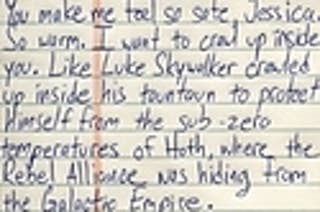 You make me feel so safe, Jessica.
So warm. I want to crawl up inside
you. Like Luke Skywalker crawled
up inside his tauntaun to protect
himself from the sub-zero
temperatures of Hoth, where the
Rebel Alliance was hiding from
the Galactic Empire.